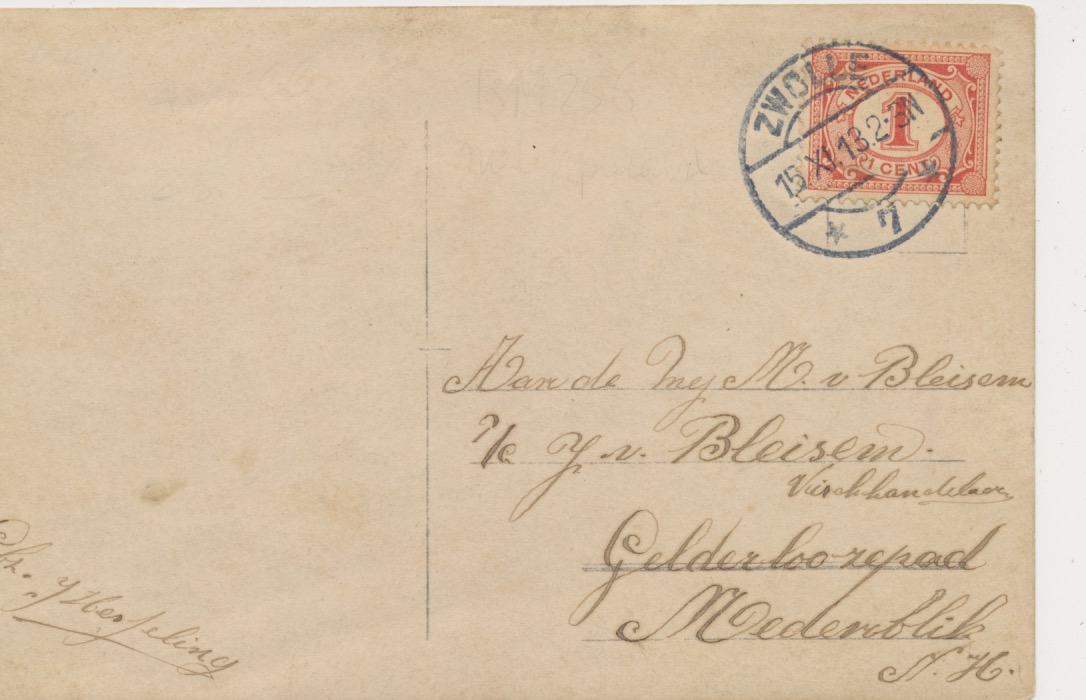 ZWOLLE
15 XI 13. 2-3N
7
NEDERLAND
1
1 CENT
Aan de Mej M. v Bleisem
J. v. Bleisem.
Vischhandelaar
Gelderloozepad
Medemblik
N. H.
J Hesseling